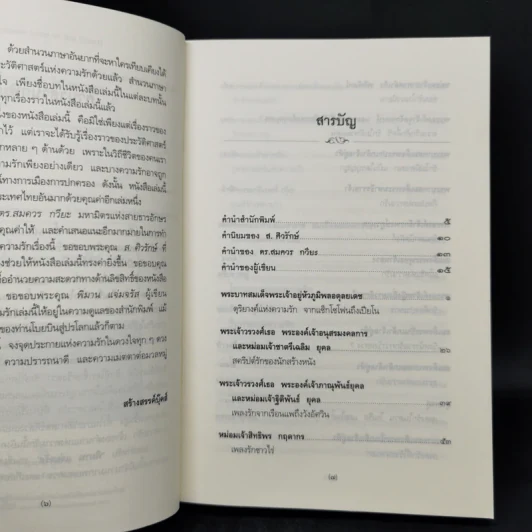 ด้วยสำนวนภาษาอันยากที่จะหาใครเทียบเคียงได้
ะวัติศาสตร์แห่งความรักด้วยแล้ว สำนวนภาษา
ใจ เพียงชื่อบทในหนังสือเล่มนี้ในแต่ละบทนั้น
ทุกเรื่องราวในหนังสือเล่มนี้แล้ว
ของหนังสือเล่มนี้ คือมิใช่เพียงแต่เรื่องราวของ
าไว้ แต่เราจะได้รับรู้เรื่องราวของประวัติศาสตร์
กหลาย ๆ ด้านด้วย เพราะในวิถีชีวิตของคนเรา
วามรักเพียงอย่างเดียว และบางความรักอาจถูก
ทางการเมืองการปกครอง ดังนั้น หนังสือเล่มนี้
ะเทศไทยอันมากด้วยคุณค่าอีกเล่มหนึ่ง
ดร.สมควร กวียะ มหามิตรแห่งสายธารอักษร
คุณค่าให้ และคำเสนอแนะอีกมากมายในการทำ
ความรักเรื่องนี้ ขอขอบพระคุณ ส.ศิวรักษ์ ที่
งช่วยให้หนังสือเล่มนี้ทรงค่ายิ่งขึ้น ขอขอบคุณ
อำนวยความสะดวกทางด้านลิขสิทธิ์ของหนังสือ
ขอขอบพระคุณ พิมาน แจ่มจรัส ผู้เขียน
วามรักเล่มนี้ให้อยู่ในความดูแลของสำนักพิมพ์ แม้
ของท่านโบยบินสู่ปรโลกแล้วก็ตาม
จงจุดประกายแห่งความรักในดวงใจทุก ๆ ดวง
ความปรารถนาดี และความเมตตาต่อมวลหมู่
สร้างสรรค์บุ๊คส์
(๖)
สารบัญ
คำนำสำนักพิมพ์ ๕
คำนิยมของ ส. ศิวรักษ์ ๑๐
คำนำของ ดร.สมควร กวียะ ๑๓
คำนำของผู้เขียน ๑๕
พระบาทสมเด็จพระเจ้าอยู่หัวภูมิพลอดุลยเดช ๑
ดุริยางค์แห่งความรัก จากแซ็กโซโฟนถึงเปียโน
พระเจ้าวรวงศ์เธอ พระองค์เจ้าอนุสรมงคลการ
และหม่อมเจ้าชาตรีเฉลิม ยุคล ๒๖
สคริปต์รักของนักสร้างหนัง
พระเจ้าวรวงศ์เธอ พระองค์เจ้าภาณุพันธุ์ยุคล
และหม่อมเจ้าฐิติพันธุ์ ยุคล ๓๙
เพลงรักจากเรือนแพถึงวังอัศวิน
หม่อมเจ้าสิทธิพร กฤดากร ๕๓
เพลงรักชาวไร่
(๗)